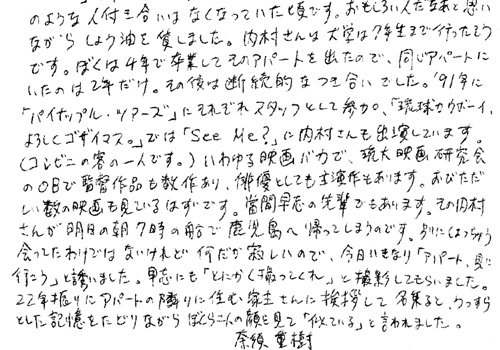 のような人付き合いはなくなっていた頃です。おもしろい人だなあと思い
ながらしょう油を貸しました。内村さんは大学は7年生まで行ったそう
です。ぼくは4年で卒業してそのアパートを出たので、同じアパートに
いたのは2年だけ。その後は断続的なつき合いでした。'91年に
「パイナップル・ツアーズ」にそれぞれスタッフとして参加。「琉球カウボーイ、
よろしくゴザイマス。」では「See Me?」に内村さんも出演しています。
(コンビニの客の一人です。)いわゆる映画バカで、琉大映画研究会
のOBで監督作品も数作あり、俳優としても主演作もあります。おびただ
しい数の映画も見ているはずです。當間早志の先輩でもあります。その内村
さんが明日の朝7時の船で鹿児島へ帰ってしまうのです。別にしょっちゅう
会ってたわけではないけれど何だか寂しいので、今日いきなり「アパート、見に
行こう」と誘いました。早志にも「とにかく撮ってくれ」と撮影してもらいました。
22年振りにアパートの隣りに住む家主さんに挨拶して名乗ると、うっすら
とした記憶をたどりながらぼくら二人の顔を見て「似ている」と言われました。
奈須重樹